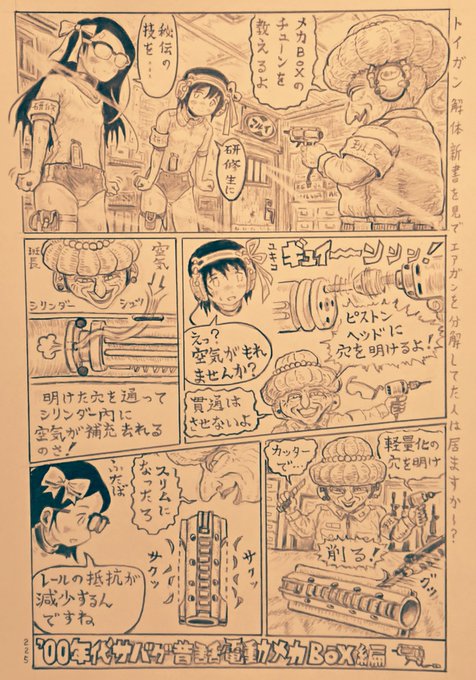 トイガン解体新書を見てエアガンを分解してた人は居ますか〜?
メカBOXの
チューンを
教えるよ
秘伝の
技を…
研修生に
研修
班長
マルイ
ユキコ
ギュイーンンン!
ピストン
ヘッドに
穴を明けるよ!
えっ?
空気がもれ
ませんか?
貫通は
させないよ
班長
空気
シリンダー
明けた穴を通って
シリンダー内に
空気が補充去れる
のさ!
軽量化の
穴を明け
カッター
で…
削る!
グッ
スリムに
なっただろ
サクッ
サクッ
ふたば
レールの抵抗が
減少するん
ですね
225
'00年代サバゲ昔話電動ガメカBOX編